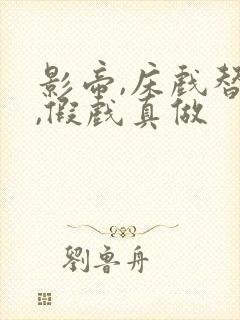 影帝,床戲替
,假戲真做
劉魯舟